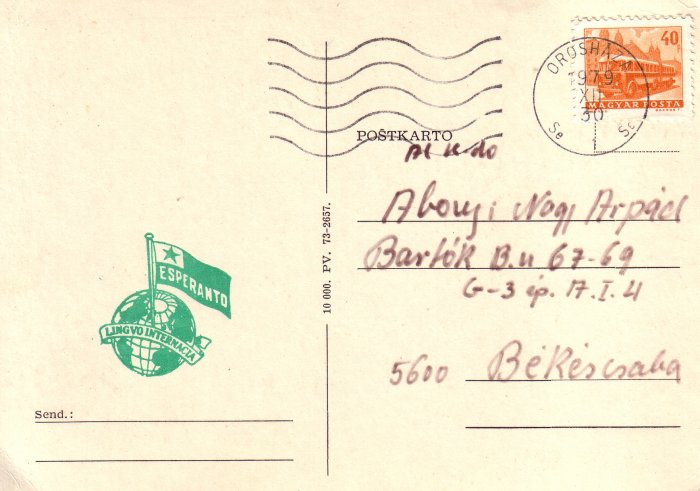 40
MAGYAR POSTA
OROSHÁZA
1979
XII
30
POŜTKARTO
Al k-do
Abonyi Nagy Árpád
Bartók B. u 67-69
G-3 ép. A. I. 4
5600 Békéscsaba
10 000. PV. 73-2657.
ESPERANTO
LINGVO INTERNACIA
Send.: